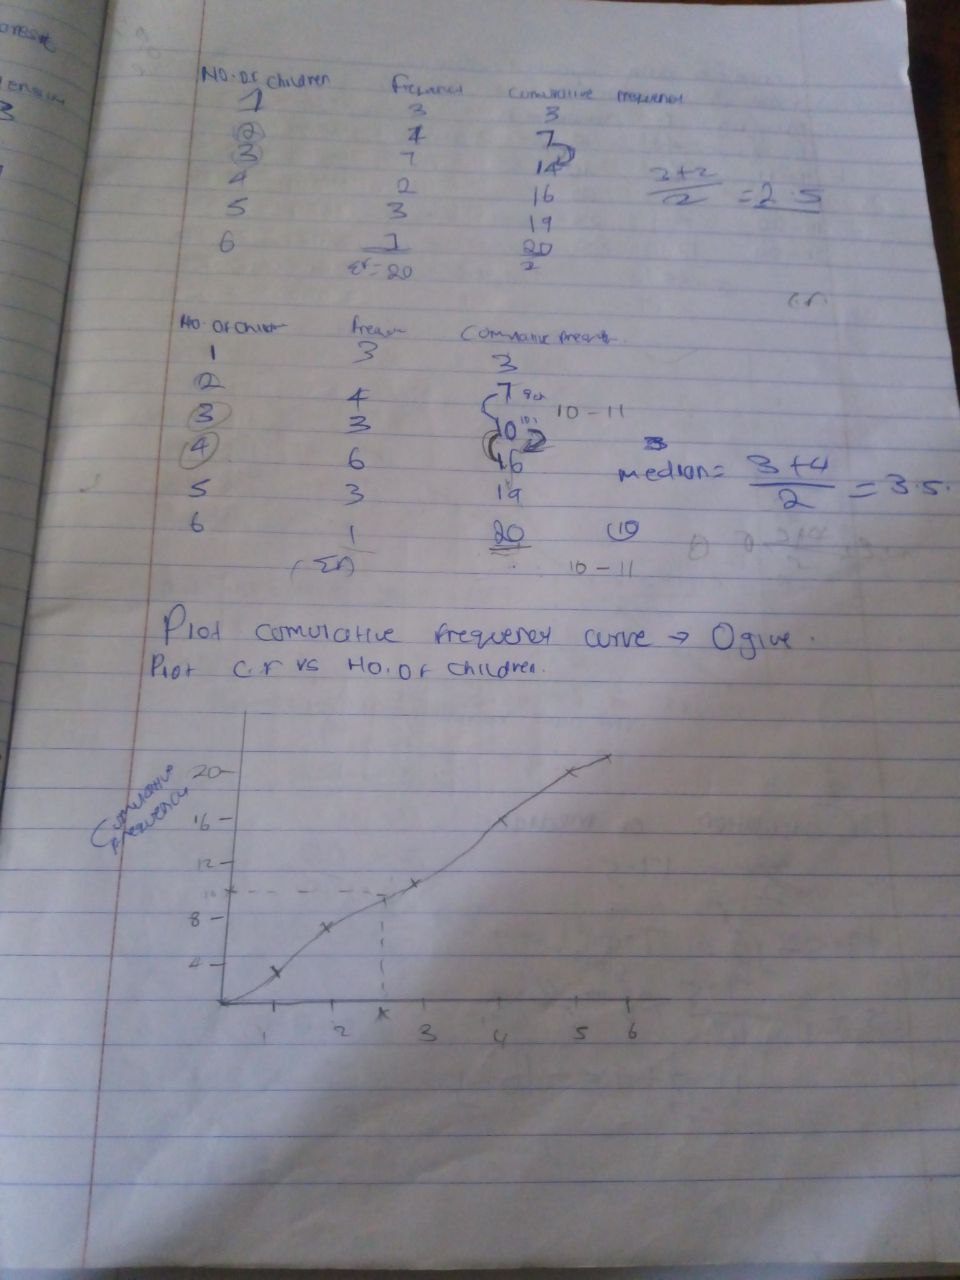 No. of children frequency cumulative frequency
1 3 3
2 4 7
3 7 14
4 2 16
5 3 19
6 1 20
Σf = 20 2
3+2 / 2 = 2.5
c.f.
No. of
1 3 3
2 4 7
3 3 10
4 6 16
5 3 19
6 1 20
10 - 11
median = 3+4 / 2 = 3.5.
10 - 11
Plot cumulative frequency curve → Ogive.
Plot c.f vs No. of children.
Cumulative
frequency
20
16
12
10
8
4
1 2 x 3 4 5 6